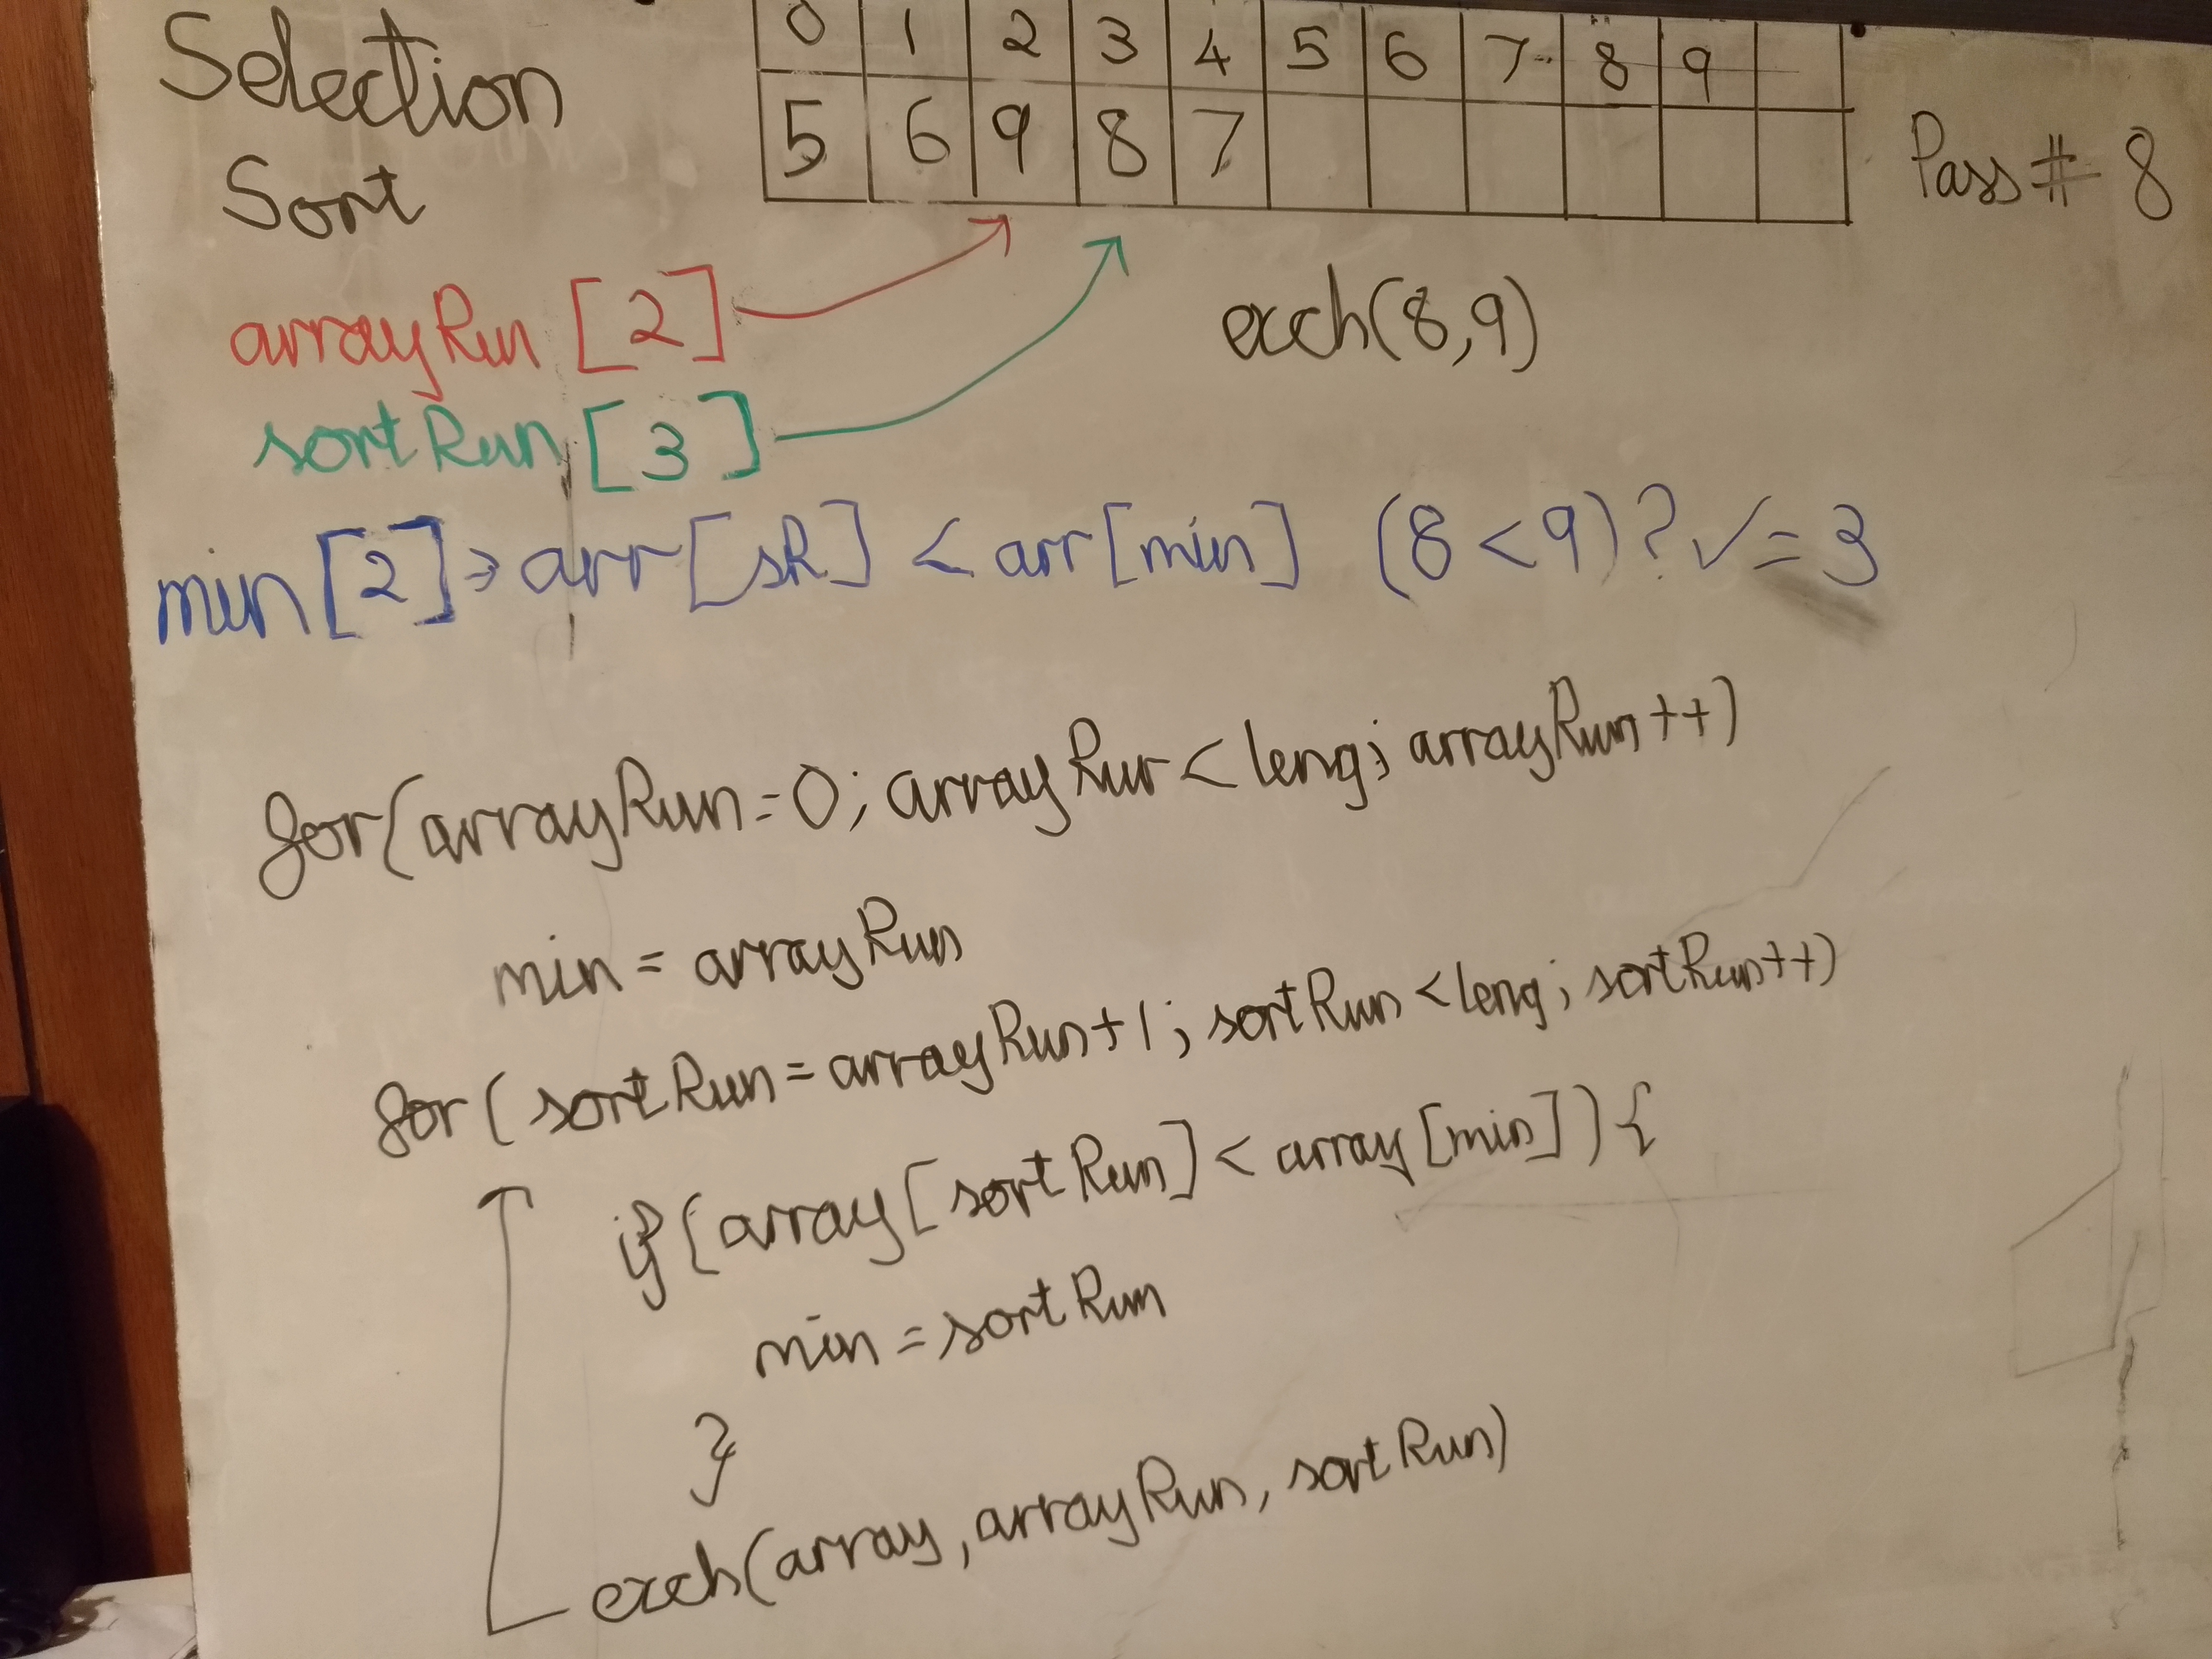 Selection
Sort
0 1 2 3 4 5 6 7 8 9
5 6 9 8 7
Pass # 8
arrayRun [2]
exch(8,9)
sortRun [3]
min[2]⇒arr[sR] < arr[min] (8<9)?✓=3
for(arrayRun=0; arrayRun<leng; arrayRun++)
min = arrayRun
for(sortRun=arrayRun+1; sortRun<leng; sortRun++)
if(array[sortRun]<array[min]){
min=sortRun
}
exch(array,arrayRun,sortRun)